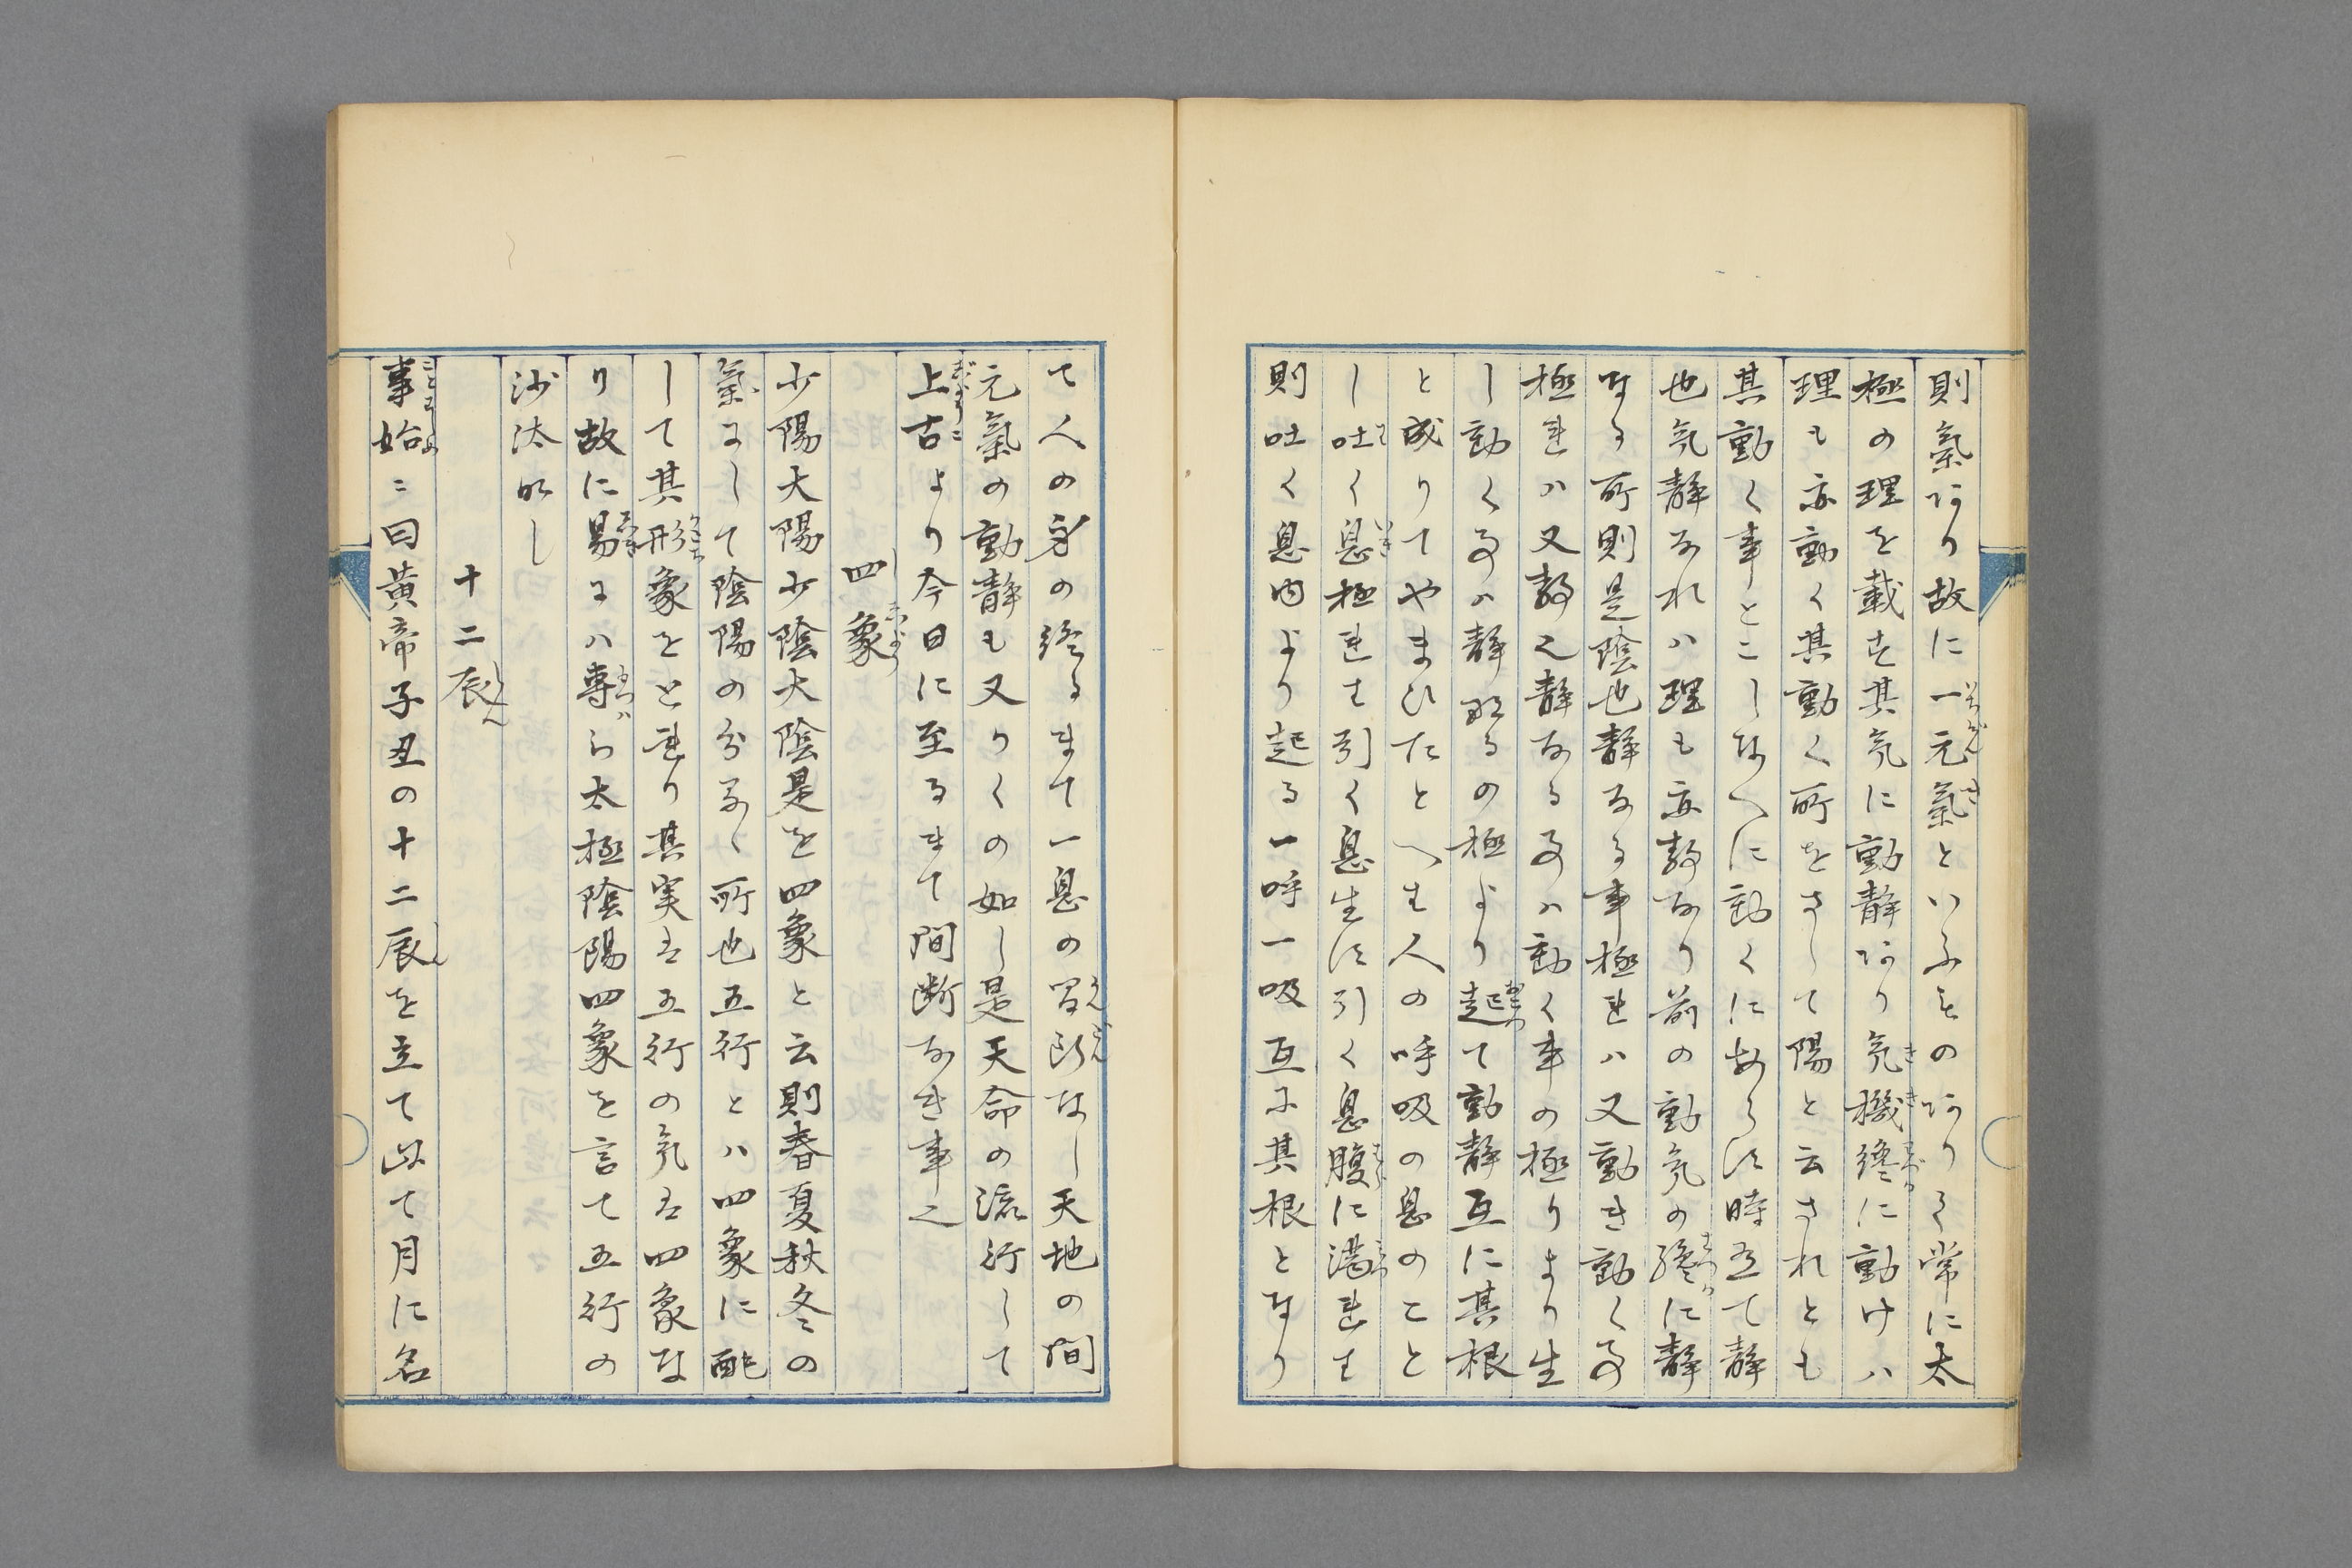 則氣あり故に一元氣といふものありて常に太
極の理を載す其気に動静あり気機纔に動けハ
理も亦動く其動く所をさして陽と云されとも
其動く事とこしなへに動くにあらす時至て静
也気静なれハ理も亦静なり前の動気の纔に静
なる所則是陰也静なる事極れハ又動き動く事
極れハ又静也静なる事ハ動く事の極りより生
し動く事ハ静なるの極より起て動静互に其根
と成りてやまひたとへは人の呼吸の息のこと
し吐く息極れは引く息生す引く息腹に満れは
則吐く息内より起る一呼一吸互に其根となり
て人の身の終るまて一息の間断なし天地の間
元氣の動静も又かくの如し是天命の流行して
上古より今日に至るまて間断なき事也
四象
少陽太陽少陰太陰是を四象と云則春夏秋冬の
氣にして陰陽の分るゝ所也五行とハ四象に配
して其形象をとれり其実は五行の気は四象な
り故に易にハ専ら太極陰陽四象を言て五行の
沙汰なし
十二辰
事始ニ曰黄帝子丑の十二辰を立て以て月に名